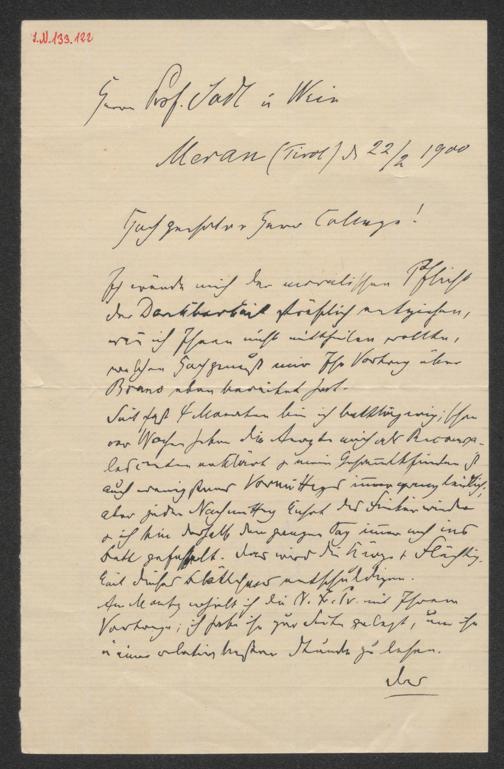 I.N.133.122
Herrn Prof. Jodl in Wien
Meran (Tirol) d 22/2 1900
Hochgeehrter Herr College!
Ich würde mich der moralischen Pflicht
der Dankbarkeit sträflich entziehen,
wenn ich Ihnen nicht mittheilen wollte,
welchen Hochgenuß mir Ihr Vortrag über
Bruno eben bereitet hat.
Seit fast 4 Monaten bin ich bettlägerig; schon
vor Wochen haben die Aerzte mich als Reconva-
lescenten erklärt u mein Gesammtbefinden ist
auch wenigstens Vormittags immer
aber jeden Nachmittag kehrt das Fieber wieder
u ich bin deshalb den ganzen Tag immer noch ins
Bett gefesselt. Das wird die Kürze u Flüchtig-
keit dieses Blättchens entschuldigen.
Am Montag erhielt ich die N. F. Pr. mit Ihrem
Vortrage; ich habe ihn zur Seite gelegt, um ihn
in einer relativ besten Stunde zu lesen.
Das